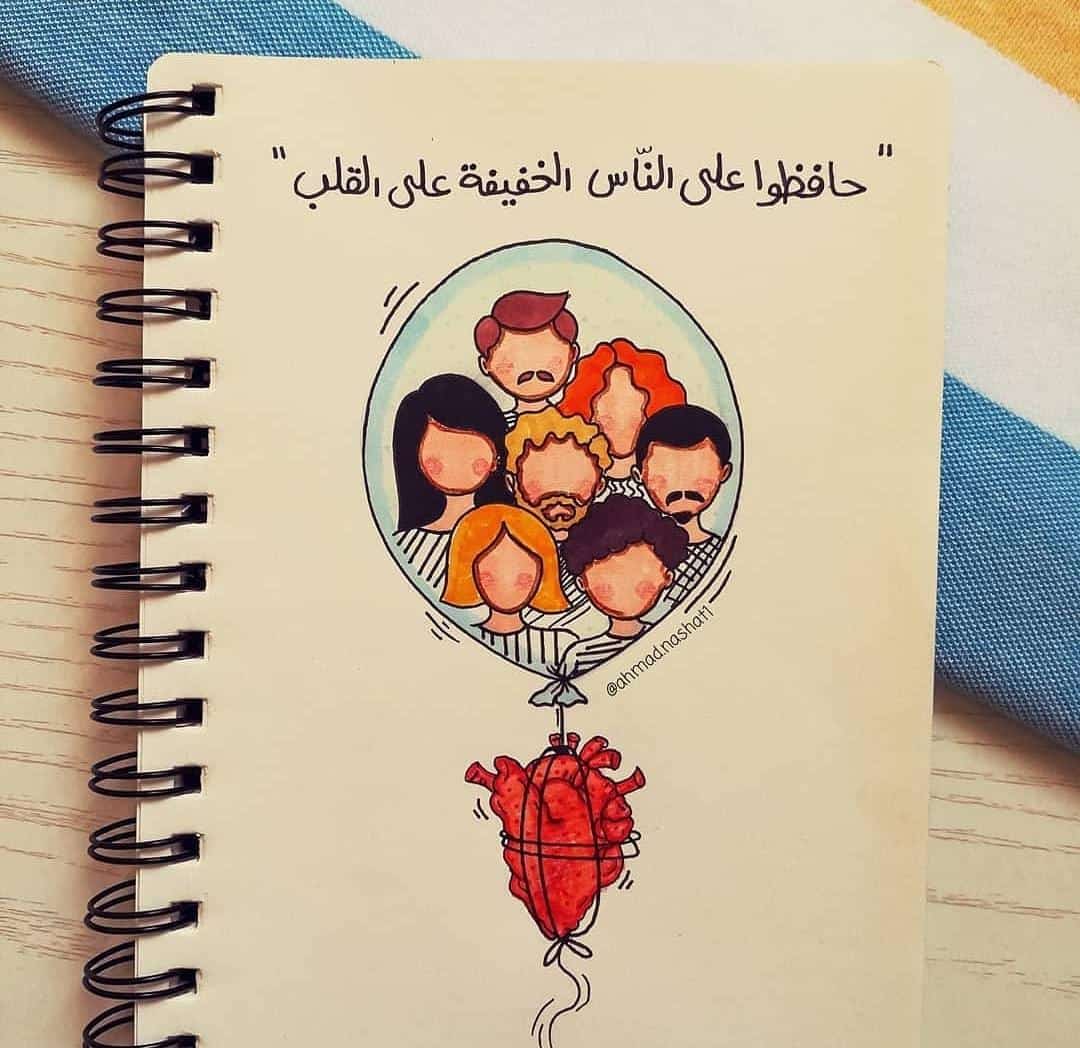 "حافظوا على النّاس الخفيفة على القلب"
@ahmad.nashat1